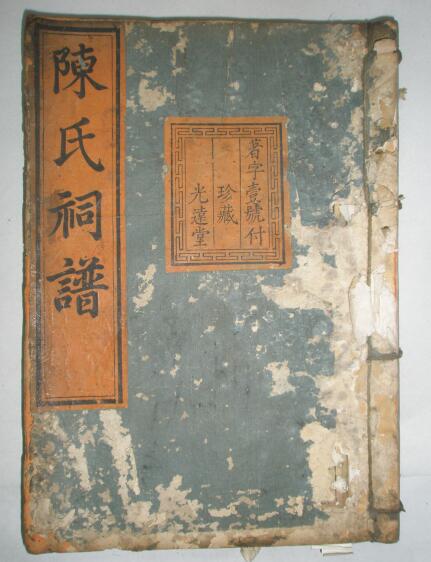 陳氏祠譜
著字壹號付
珍藏
光達堂